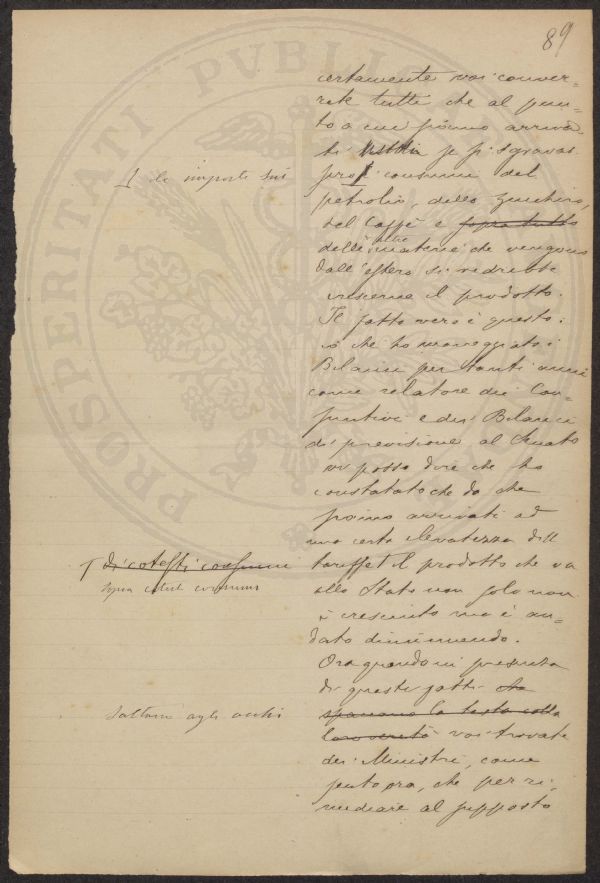 89
certamente voi conver=
rete tutti che al pun=
to a cui siamo arriva
ti se si sgravas
sero i consumi del
⊥ le imposte sui
petrolio, dello zucchero,
del Caffè e sopra tutto
delle altre materie che vengono
dall'estero si vedrebbe
crescerne il prodotto.
Il fatto vero è questo:
io che ho maneggiato i
Bilanci per tanti anni
come relatore dei Con=
suntivi e dei Bilanci
di previsione al Senato
vi posso dire che ho
constatato che da che
siamo arrivati ad
una certa elevatezza di
tariffe T il prodotto che va
T di cotesti consumi
sopra cotesti consumi
allo Stato non solo non
è cresciuto ma è an=
dato diminuendo.
Ora quando in presenza
di questi fatti che
spaccano la testa colla
loro verità voi trovate
saltano agli occhi
dei Ministri, come
sento ora, che per ri=
mediare al supposto
PROSPERITATI PVBLICAE